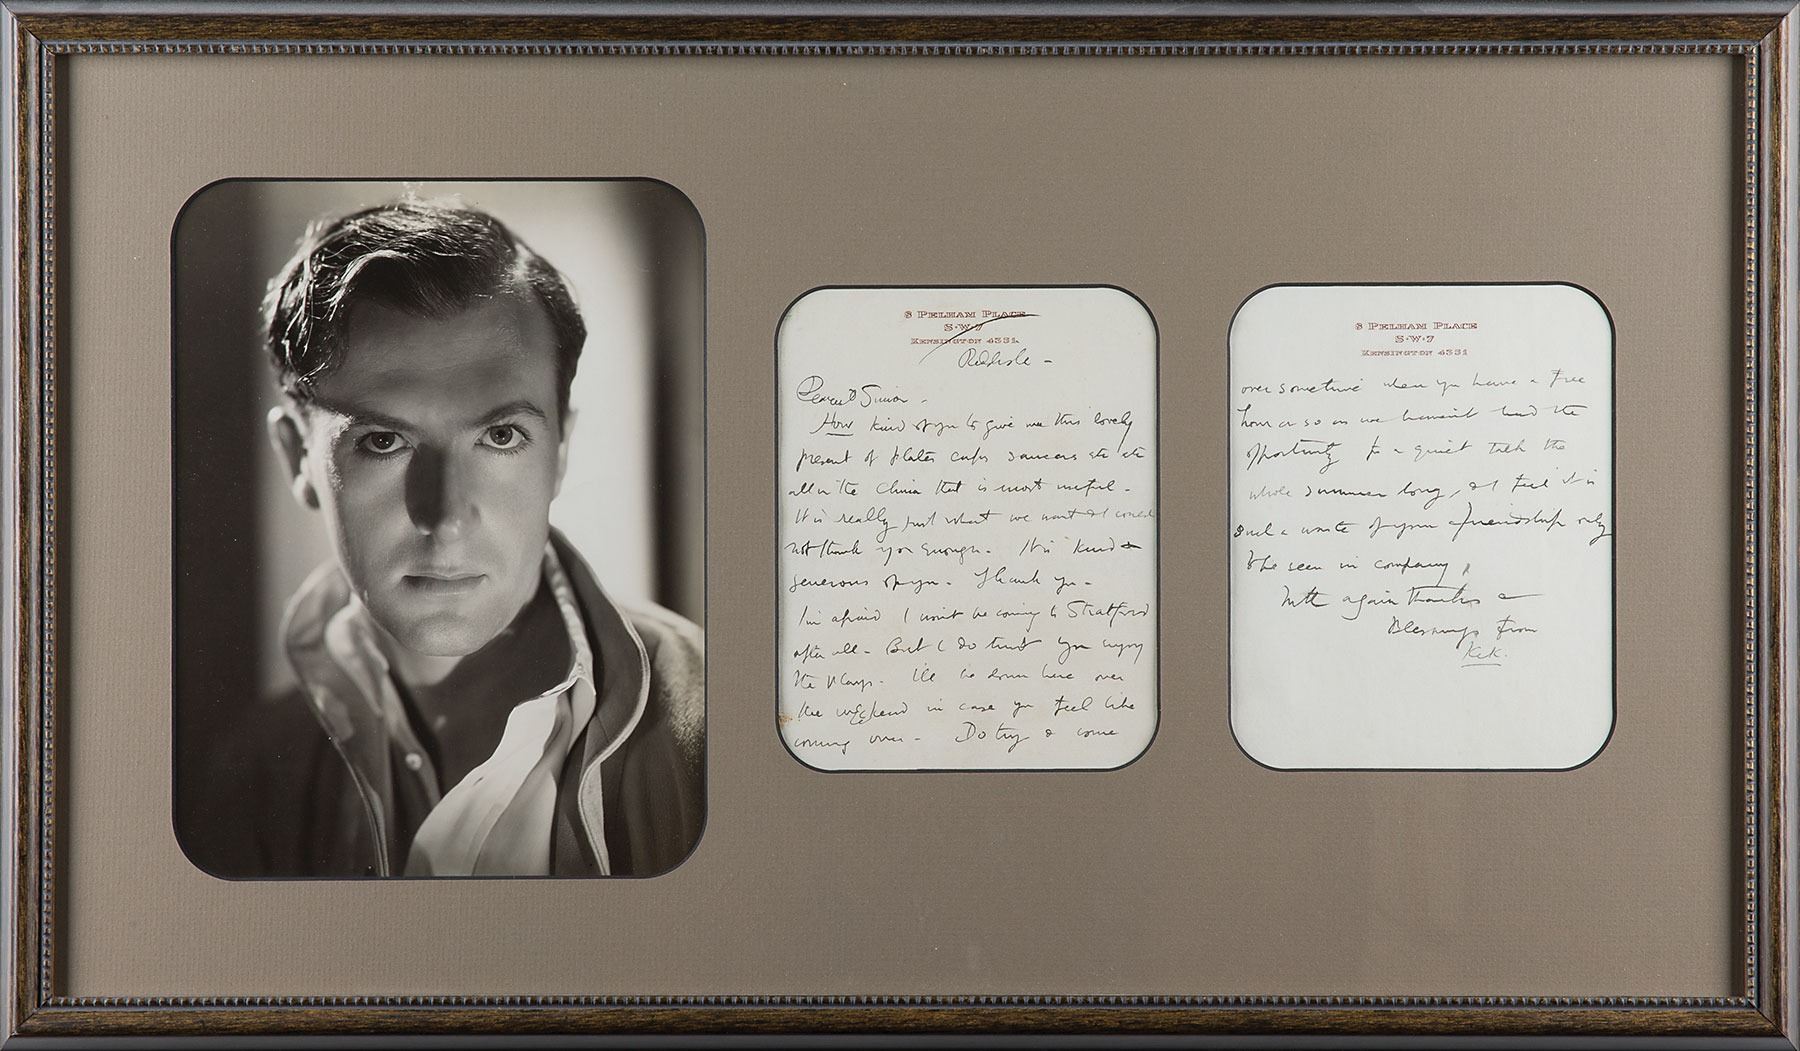 8 PELHAM PLACE
S·W·7
KENSINGTON 4331
Redlisle -
Dearest Simon -
How kind of you to give me this lovely
present of plates cups saucers etc etc
all in the China that is most useful -
It is really just what we want & I could
not thank you enough - It is kind &
generous of you - Thank you -
I'm afraid I won't be coming to Stratford
after all - But I do trust you enjoy
the plays - I'll be down here over
the weekend in case you feel like
coming over - Do try & come
8 PELHAM PLACE
S·W·7
KENSINGTON 4331
over sometime when you have a free
hour or so as we haven't had the
opportunity for a quiet talk the
whole summer long, & I feel it is
such a waste of your friendship only
to be seen in company,
With again thanks &
Blessings from